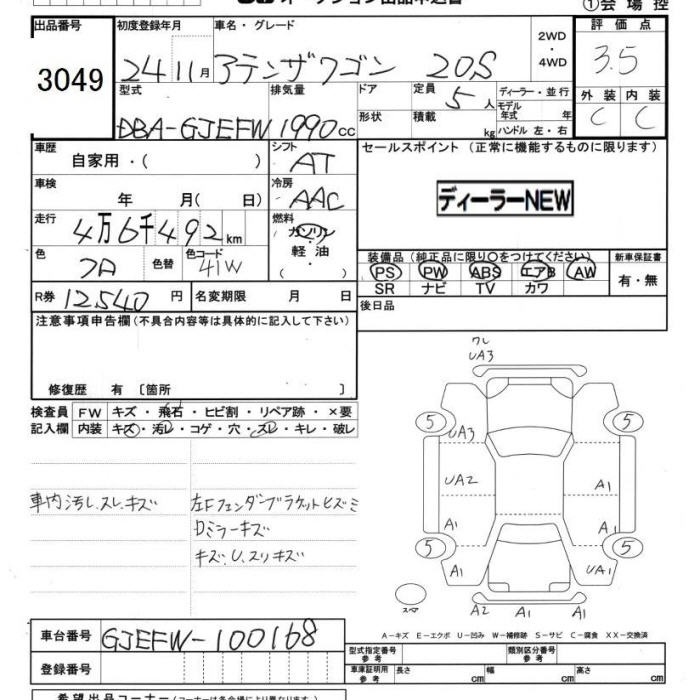 ①会場控
出品番号 初度登録年月 車名・グレード 2WD・4WD 評価点
3049 24 11月 アテンザワゴン 20S 3.5
型式 排気量 ドア 定員 5人 ディーラー・並行 外装 内装
DBA-GJEFW 1990cc 形状 積載 kg モデル年式 年 C C
ハンドル 左・右
車歴 自家用・( ) シフト AT セールスポイント (正常に機能するものに限ります)
車検 年 月( 日) 冷房 AAC ディーラーNEW
走行 4万6千492km 燃料 ガソリン・軽油・
色 色替 色コード 41W 装備品(純正品に限り○をつけてください) 新車保証書
PS PW ABS エアB AW 有・無
SR ナビ TV カワ
R券 12540円 名変期限 月 日 後日品
注意事項申告欄(不具合内容等は具体的に記入して下さい)
ワレ
UA3
修復歴 有 [箇所 ]
検査員 FW キズ・飛石・ヒビ割・リペア跡・×要
記入欄 内装 キズ・汚レ・コゲ・穴・スレ・キレ・破レ
5 5
UA3
UA2 A1
車内汚レ.スレ.キズ 左Fフェンダーブラケットヒズミ
Dミラーキズ A1 A1
キズ.U.スリキズ 5 5
A1 A1
スペア A2 A1 A1
A-キズ E-エクボ U-凹み W-補修跡 S-サビ C-腐食 XX-交換済
車台番号 GJEFW-100168
型式指定番号 参考 類別区分番号 参考
登録番号 車庫証明用 参考 長さ cm 幅 cm 高さ cm
希望出品コーナー(コーナーは各会場により異なります)